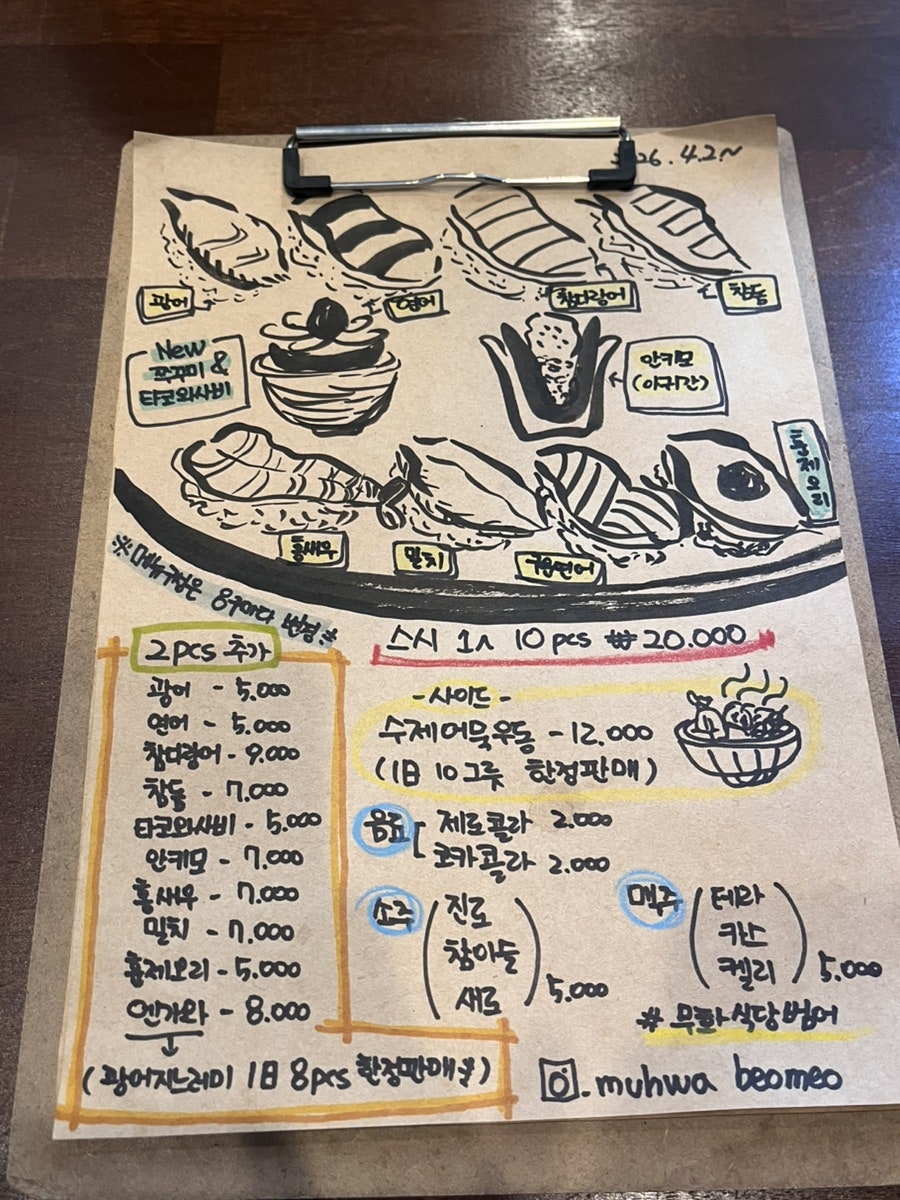 26. 4. 2 ~
광어
연어
참다랑어
참돔
New
쭈꾸미 &
타코와사비
안키모
(아귀간)
훈제오리
홍새우
밀치
구운연어
※ 메뉴구성은 8주마다 변경 ※
2pcs 추가
광어 - 5.000
연어 - 5.000
참다랑어 - 9.000
참돔 - 7.000
타코와사비 - 5.000
안키모 - 7.000
홍새우 - 7.000
밀치 - 7.000
훈제오리 - 5.000
엔가와 - 8.000
(광어지느러미 1日 8pcs 한정판매 )
스시 1人 10 pcs ₩ 20.000
- 사이드 -
수제어묵우동 - 12.000
(1日 10그릇 한정판매)
음료
제로콜라 2.000
코카콜라 2.000
소주
진로
참이슬
새로
5.000
맥주
테라
카스
켈리
5.000
# 무화식당범어
.muhwa beomeo